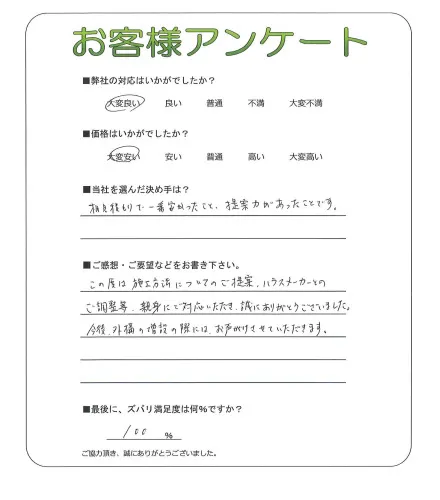 お客様アンケート
■弊社の対応はいかがでしたか？
大変良い 良い 普通 不満 大変不満
■価格はいかがでしたか？
大変安い 安い 普通 高い 大変高い
■当社を選んだ決め手は？
相見積りで一番安かったこと、提案力があったことです。
■ご感想・ご要望などをお書き下さい。
この度は施工方法についてのご提案、ハウスメーカーとの
ご調整等、親身にご対応いただき、誠にありがとうございました。
今後、外構の増設の際には、お声がけさせていただきます。
■最後に、ズバリ満足度は何%ですか？
100 %
ご協力頂き、誠にありがとうございました。